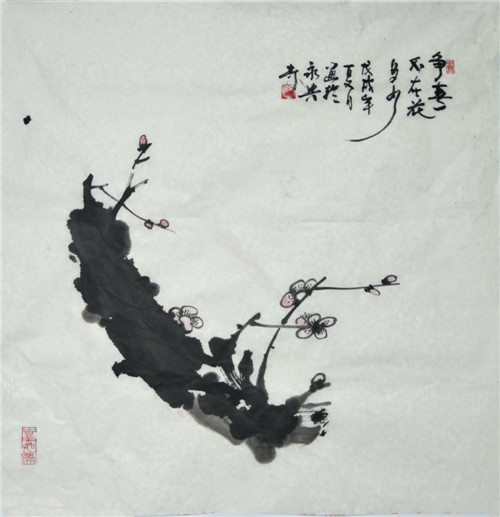 争春
不在花
多少
戊戌年
夏月
写於
永兴